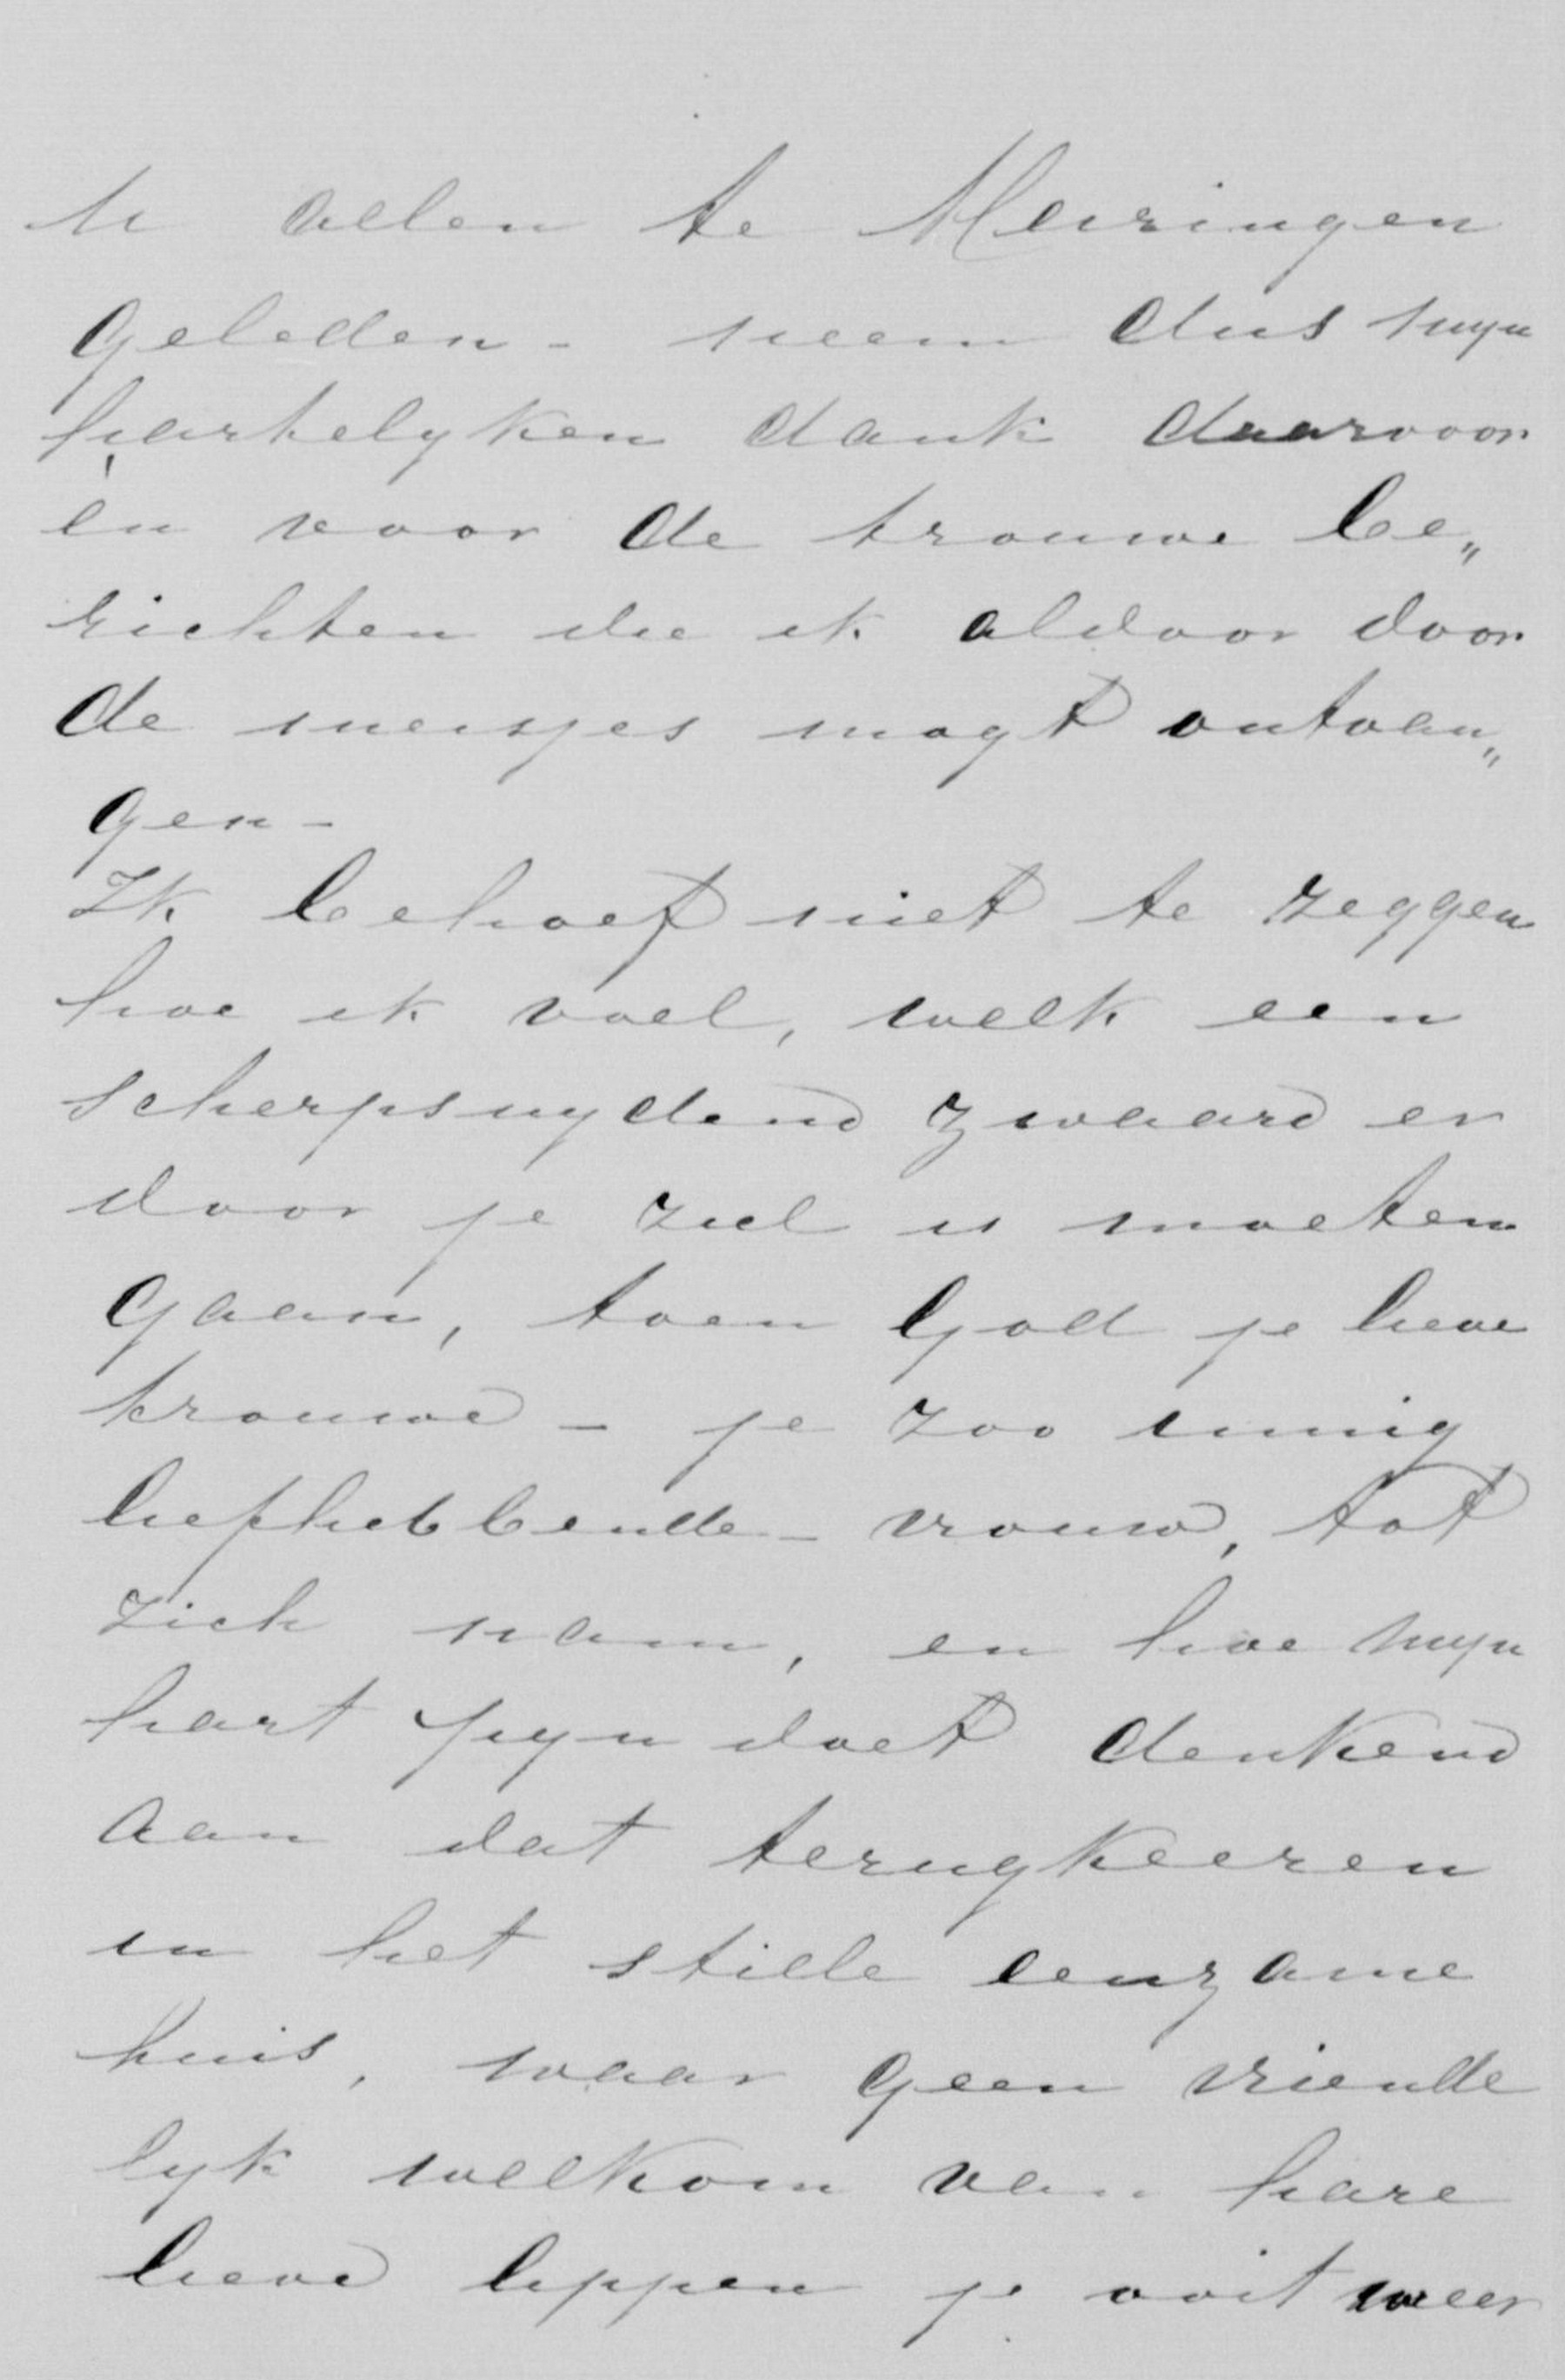 U allen te Meiringen
geleden - neem dus myn
hartelyken dank daarvoor
èn voor de trouwe be„
richten die ik aldoor door
de meisjes mogt ontvan„
gen -
Ik behoef niet te zeggen
hoe ik voel, welk een
scherpsnydend zwaard er
door je ziel is moeten
gaan, toen God je lieve
trouwe - je zoo innig
liefhebbende - vrouw, tot
zich nam, en hoe myn
hart pyn doet denkend
aan dat terugkeeren
in het stille eenzame
huis, waar geen vriende
lyk welkom van hare
lieve lippen je ooit weer